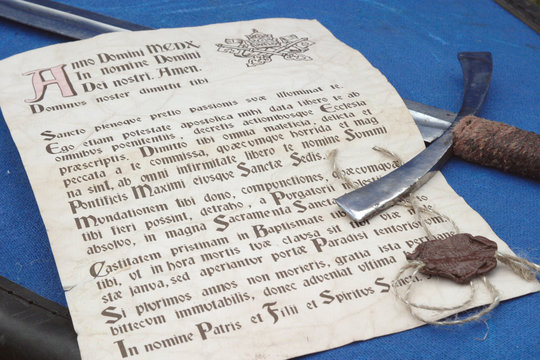 Anno Domini MCDX
In nomine Domini
Dei nostri. Amen.
Dominus noster dimitut tibi
Sancto plenoque pretio passionis suæ illuminat te.
Ego etiam potestate apostolica mihi data libero te ab
omnibus poenitentiis decretis actionibusque Ecclesia
præscriptis. Dimitto tibi omnia maleficia delicta et
peccata a te commissa, quæcumque horrida et mag
na sint, ab omni infirmitate libero te nomine Summi
Pontificis Maximi eiusque Sanctæ Sedis.
Mundationem tibi dono, compunctiones, quæcumque
tibi fieri possint, detraho, a Purgatorii
absolvo, in magna Sacramenta Sanctæ
Castitatem pristinam in Baptismate
tibi, ut in hora mortis tuæ clausa sit tibi viæ
stæ janua, sed aperiantur portæ Paradisi
Si plurimos annos non morieris, gratia ista per
bittecum immutabilis, donec adveniat ultima
In nomine Patris et Filii et Spiritus Sancti.